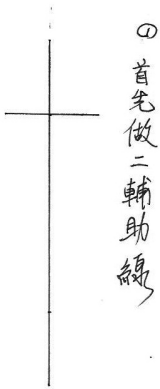 ① 首先做二輔助線